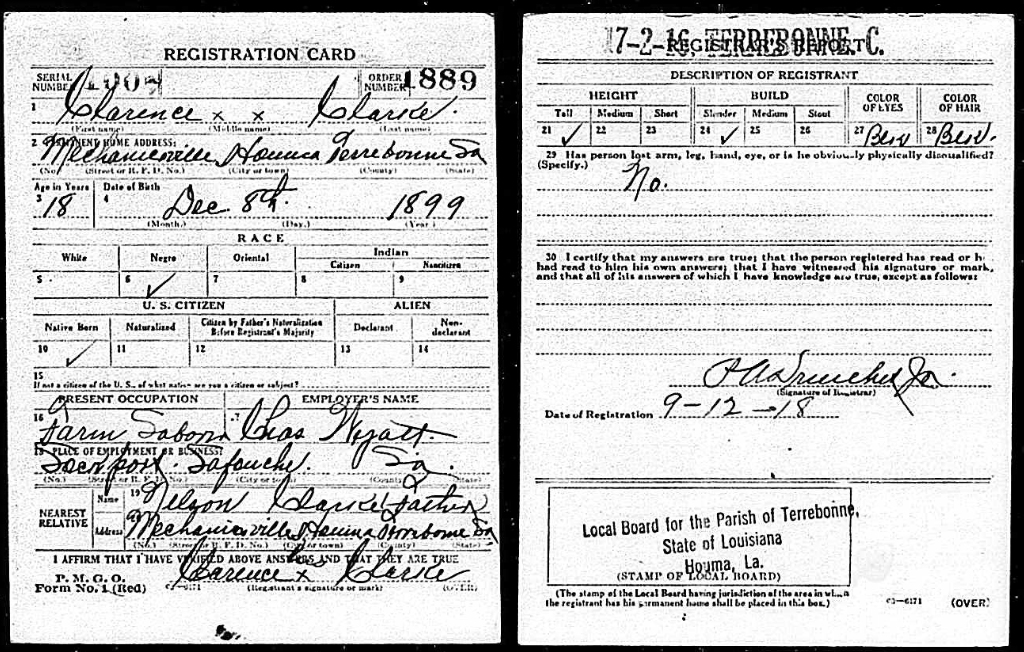 REGISTRATION CARD
SERIAL NUMBER ORDER NUMBER 1889
1 Clarence x x Clarke.
(First name) (Middle name) (Last name)
2 PERMANENT HOME ADDRESS:
Mechanicsville Houma Terrebonne La
(No.) (Street or R. F. D. No.) (City or town) (County) (State)
Age in Years Date of Birth
3 18 4 Dec. 8th. 1899
(Month.) (Day.) (Year.)
RACE
White Negro Oriental Indian
Citizen Noncitizen
5 6 ✓ 7 8 9
U. S. CITIZEN ALIEN
Native Born Naturalized Citizen by Father's Naturalization Before Registrant's Majority Declarant Non-declarant
10 ✓ 11 12 13 14
15
If not a citizen of the U. S., of what nation are you a citizen or subject?
PRESENT OCCUPATION EMPLOYER'S NAME
16 Farm Labor Chas Wyatt.
18 PLACE OF EMPLOYMENT OR BUSINESS:
Lafouche. La.
(No.) (Street or R. F. D. No.) (City or town) (County) (State)
NEAREST RELATIVE
Name 19 Nelson Clarke Father
Address 20 Mechanicsville Houma Terrebonne La
(No.) (Street or R. F. D. No.) (City or town) (County) (State)
I AFFIRM THAT I HAVE VERIFIED ABOVE ANSWERS AND THAT THEY ARE TRUE
P. M. G. O.
Form No. 1 (Red) Clarence x Clarke
(Registrant's signature or mark) (OVER)
17-2-16. TERREBONNE. C.
REGISTRAR'S REPORT
DESCRIPTION OF REGISTRANT
HEIGHT BUILD COLOR OF EYES COLOR OF HAIR
Tall Medium Short Slender Medium Stout
21 ✓ 22 23 24 ✓ 25 26 27 28
29 Has person lost arm, leg, hand, eye, or is he obviously physically disqualified?
(Specify.) No.
30 I certify that my answers are true; that the person registered has read or h
had read to him his own answers; that I have witnessed his signature or mark,
and that all of his answers of which I have knowledge are true, except as follows:
(Signature of Registrar)
Date of Registration 9-12-18
Local Board for the Parish of Terrebonne,
State of Louisiana
Houma, La.
(STAMP OF LOCAL BOARD)
(The stamp of the Local Board having jurisdiction of the area in which
the registrant has his permanent home shall be placed in this box.) 03-6171 (OVER)